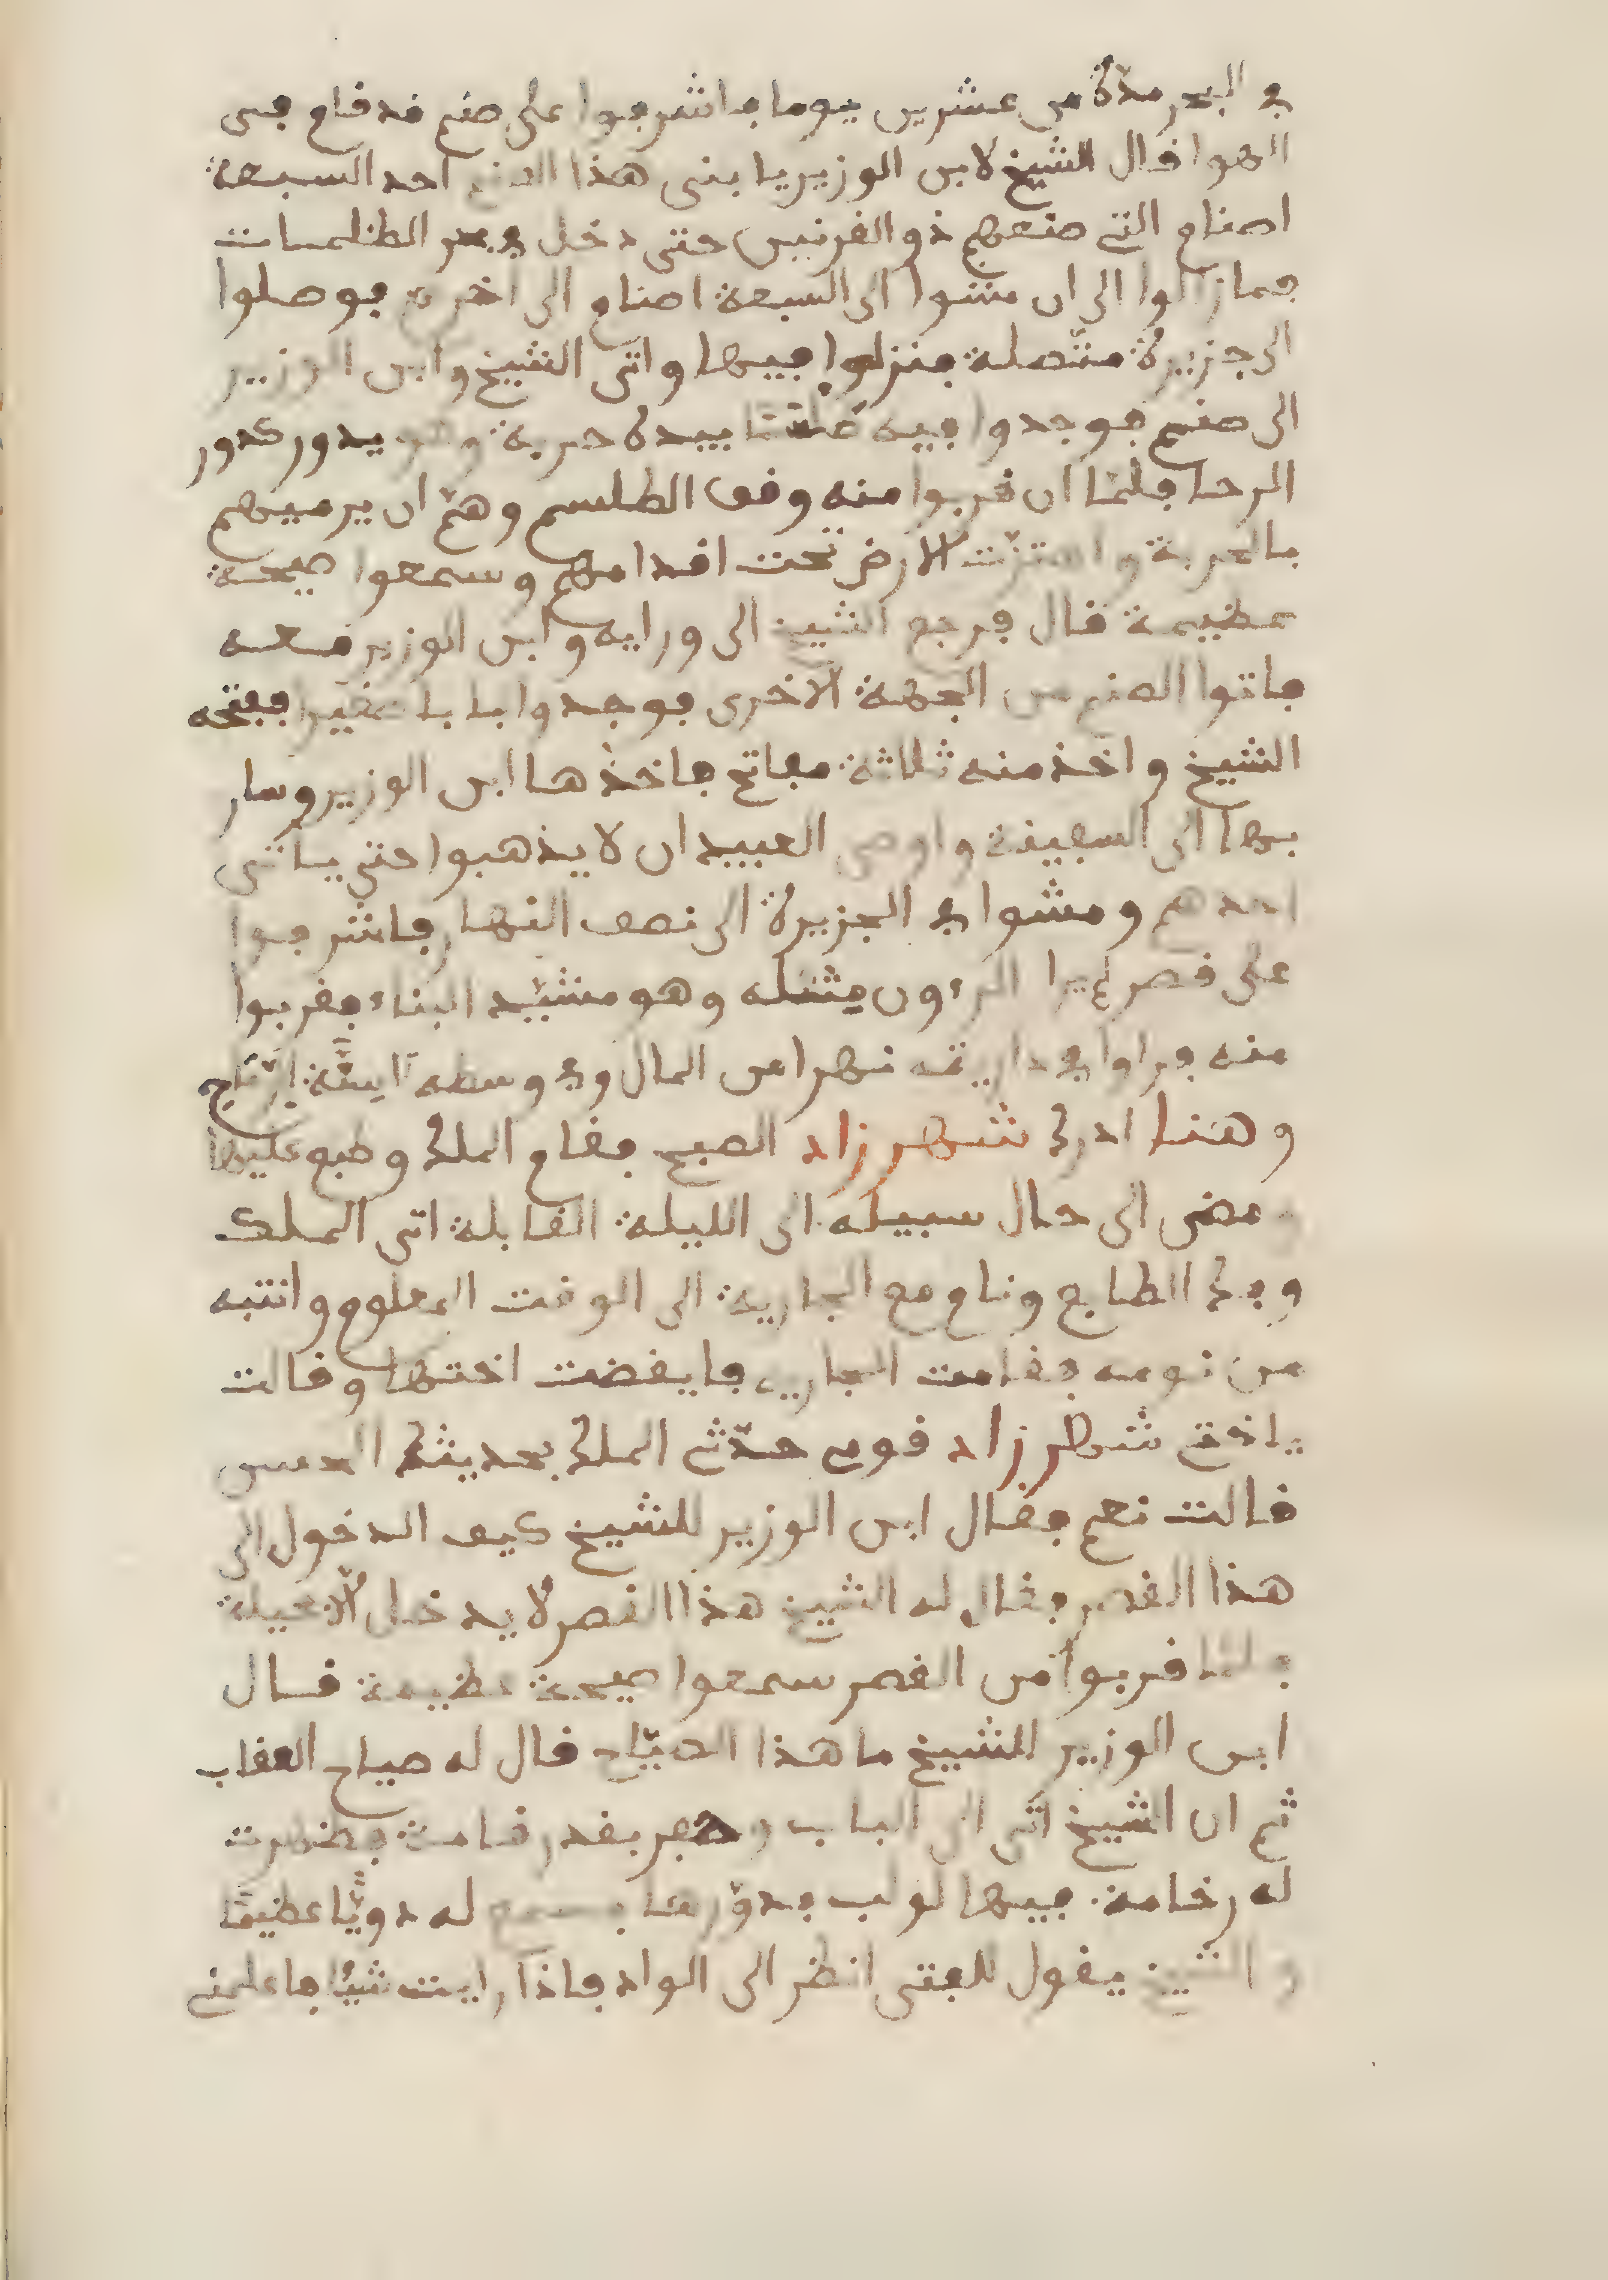 في البحر مدّة من عشرين يوما فاشرفوا على صنم قد قام في
الهوا قال الشيخ لابن الوزير يا بنى هذا الصنم احد السبعة
اصنام التي صنعهم ذو القرنين حتى دخل بحر الطلمسات
فمازالوا الى ان مشوا الى السبعة اصنام الى اخرهم فوصلوا
الى جزيرة متّصلة فنزلوا فيها واتى الشيخ وابن الوزير
الى صنم فوجدوا فيه بيده حربة وهو يدور كدور
الرحا فلمّا ان قربوا منه وقف الطلسم وهمّ ان يرميهم
بالحربة واهتزّت الارض تحت اقدامهم وسمعوا صيحة
عظيمة قال فرجع الشيخ الى ورايه وابن الوزير معه
فاتوا الصنم من الجهة الاخرى فوجدوا بابا صغيرا ففتحه
الشيخ واخذ منه ثلاثة مفاتح فاخذها ابن الوزير وسار
بها الى السفينة واوصى العبيد ان لا يذهبوا حتى ياتى
احدهم ومشوا في الجزيرة الى نصف النهار فاشرفوا
على قصر لم يرا الرءون مثله وهو مشيّد البناء فقربوا
منه فراوا في داريته نهرا من المال وفي وسطه
وهنا ادرك شهرزاد الصبح فقام الملك وطبع عليها
ومضى الى حال سبيله الى الليلة القابلة اتى الملك
وفك الطابع ونام مع الجارية الى الوقت المعلوم وانتبه
من نومه فقامت الجارية فايقضت اختها وقالت
يا اختي شهرزاد قومي حدّثي الملك بحديثك الحسن
قالت نعم فقال ابن الوزير للشيخ كيف الدخول الى
هذا القصر فقال له الشيخ هذا القصر لا يدخل الّا بحيلة
فلمّا قربوا من القصر سمعوا صيحة عظيمة قال
ابن الوزير للشيخ ما هذا الصيّاح قال له صياح العقاب
ثم ان الشيخ اتى الى الباب وحفر بقدر قامة فظهرت
له رخامة فيها لولب فدوّرها فسمع له دويّا عظيما
والشيخ يقول للفتى انظر الى الواد فاذا رايت شيئا فاعلمني